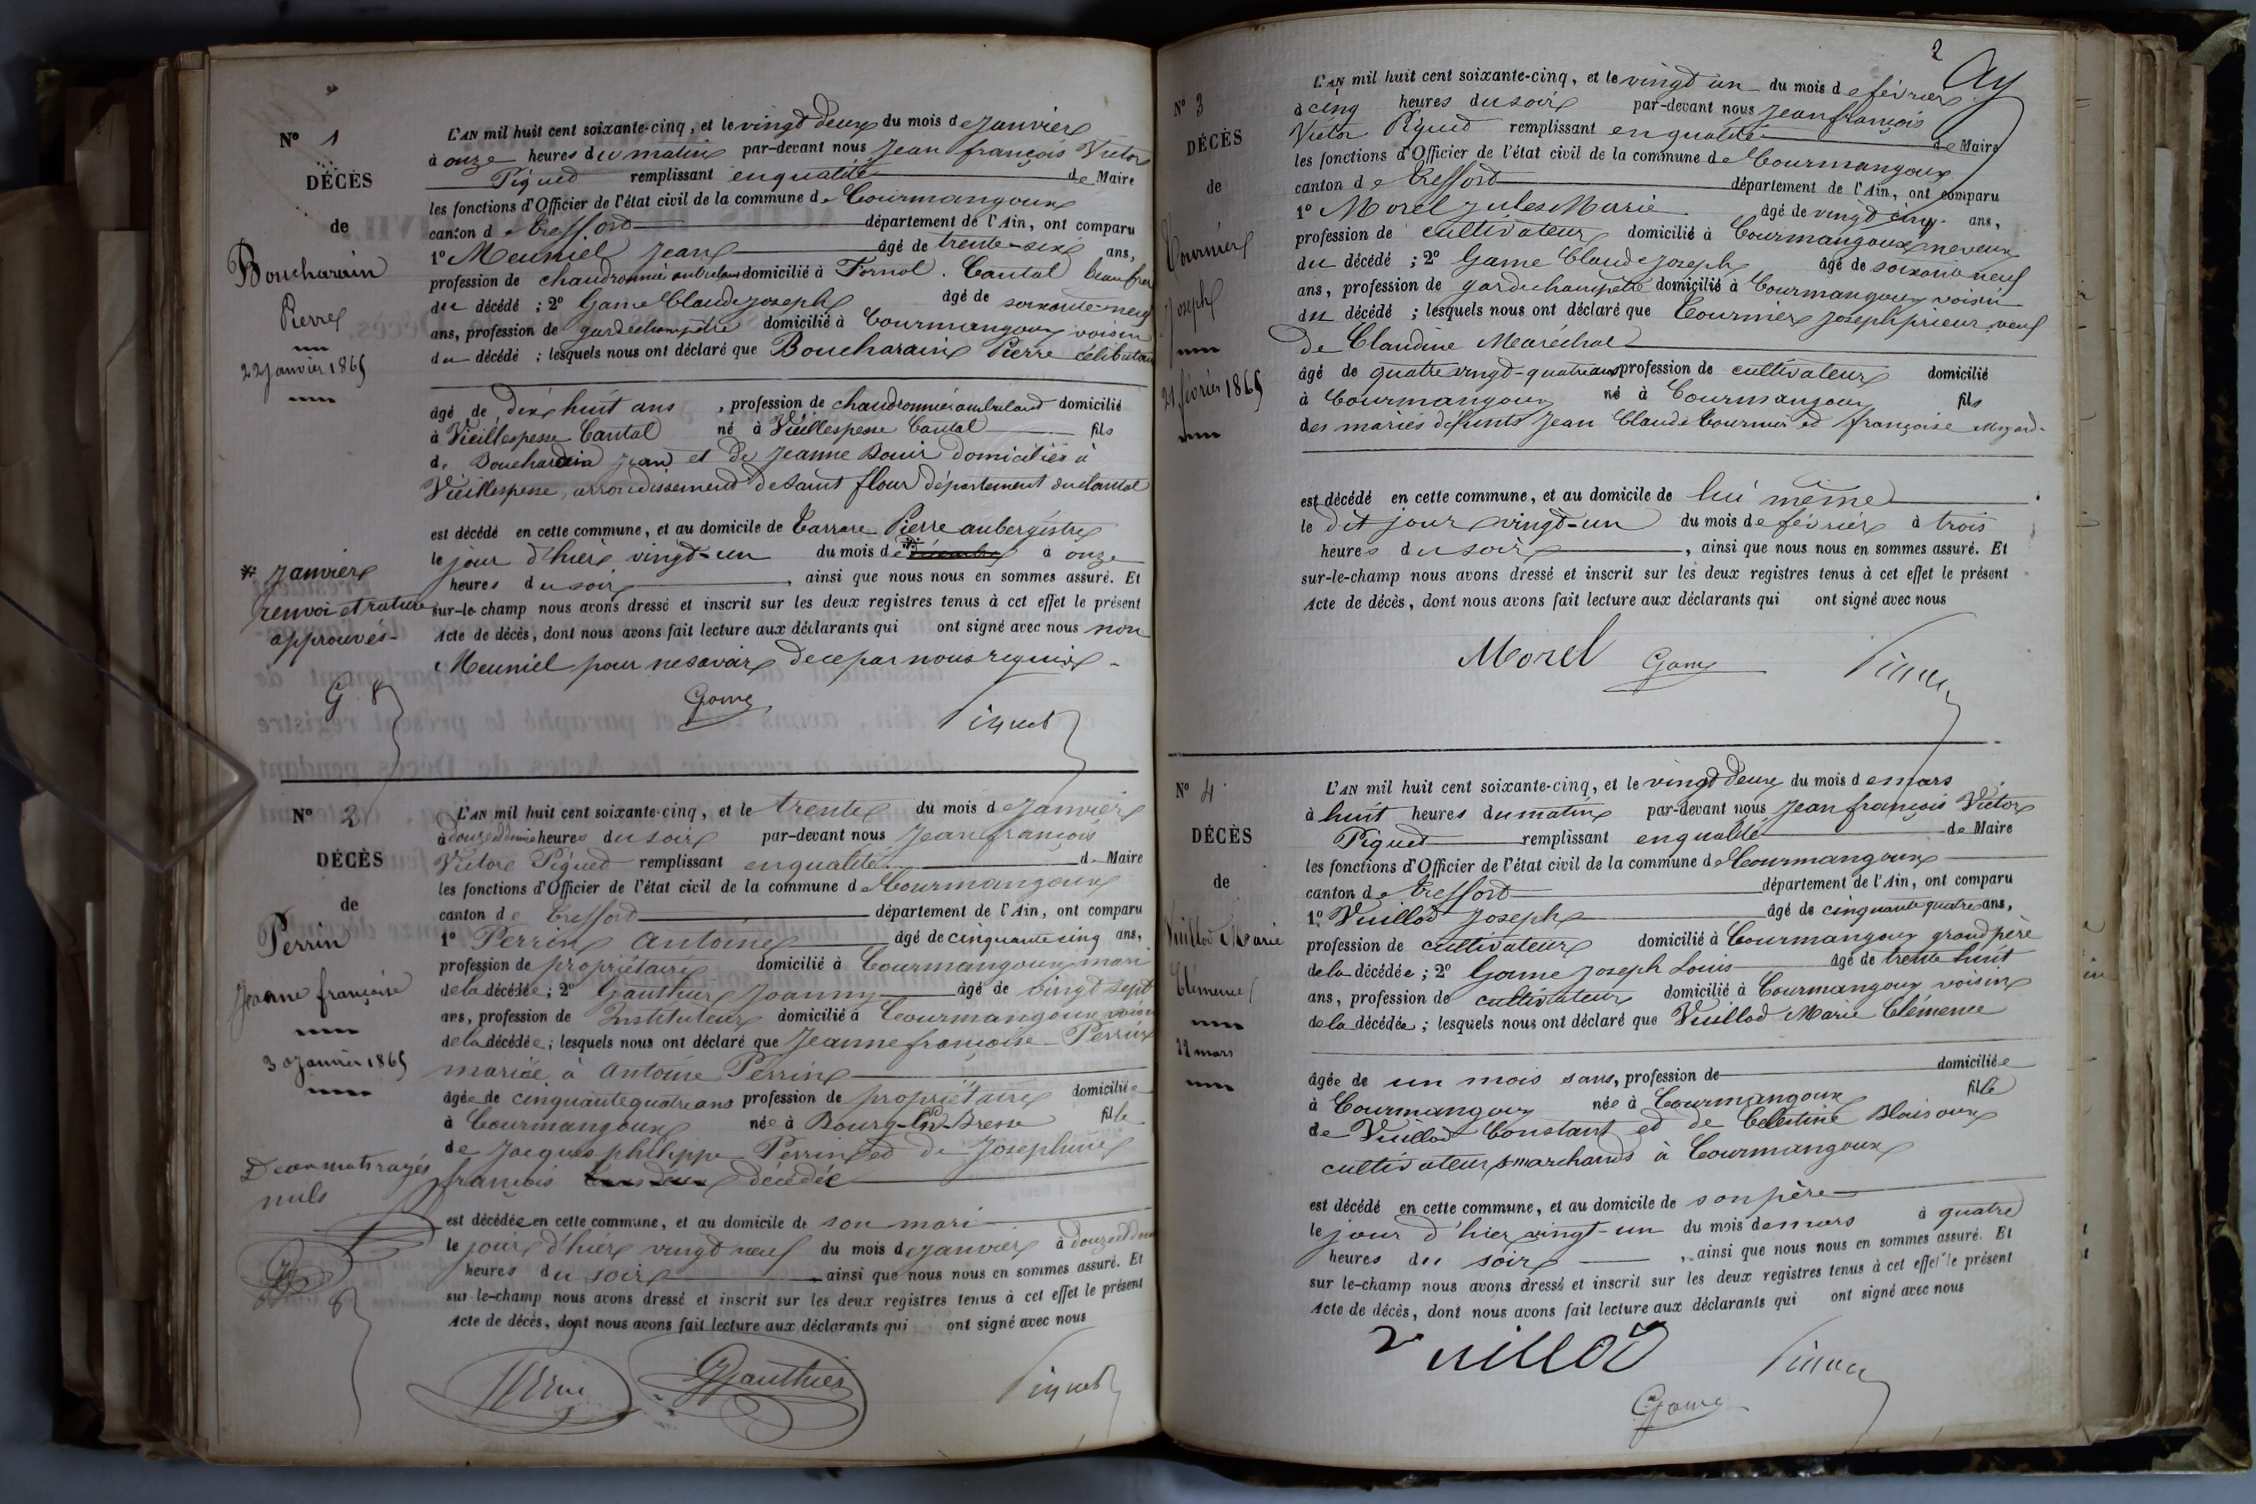 N° 1
DÉCÈS
de
Boucharain
Pierre
22 Janvier 1865
L'AN mil huit cent soixante-cinq, et le vingt deux du mois de Janvier
à onze heures du matin par-devant nous Jean françois Victor
Piquet remplissant en qualité de Maire
les fonctions d'Officier de l'état civil de la commune de Courmangoux
canton de Treffort département de l'Ain, ont comparu
1° Meuniel Jean âgé de trente-six ans,
profession de chaudronnier ambulant domicilié à Fornol. Cantal beau frère
du décédé ; 2° Game Claude Joseph âgé de soixante-neuf
ans, profession de garde champêtre domicilié à Courmangoux voisin
du décédé ; lesquels nous ont déclaré que Boucharain Pierre célibataire
âgé de dix huit ans, profession de chaudronnier ambulant domicilié
à Vieillespesse Cantal né à Vieillespesse Cantal fils
de Boucharain Jean et de Jeanne Bouir domiciliés à
Vieillespesse, arrondissement de saint flour département du Cantal
est décédé en cette commune, et au domicile de Tarrare Pierre aubergiste
le jour d'hier vingt-un du mois de à onze
heures du soir, ainsi que nous nous en sommes assuré. Et
sur-le-champ nous avons dressé et inscrit sur les deux registres tenus à cet effet le présent
Acte de décès, dont nous avons fait lecture aux déclarants qui ont signé avec nous non
Meuniel pour ne savoir de ce par nous requis
* Janvier
renvoi et rature
approuvés
G P
Game Piquet
N° 2
DÉCÈS
de
Perrin
Jeanne françoise
30 Janvier 1865
L'AN mil huit cent soixante-cinq, et le trente du mois de Janvier
à douze et demie heures du soir par-devant nous Jean françois
Victor Piquet remplissant en qualité de Maire
les fonctions d'Officier de l'état civil de la commune de Courmangoux
canton de Treffort département de l'Ain, ont comparu
1° Perrin Antoine âgé de cinquante cinq ans,
profession de propriétaire domicilié à Courmangoux mari
de la décédée ; 2° Gauthier Joanny âgé de vingt sept
ans, profession de Instituteur domicilié à Courmangoux voisin
de la décédée ; lesquels nous ont déclaré que Jeanne françoise Perrin
mariée à Antoine Perrin
âgée de cinquante quatre ans profession de propriétaire domiciliée
à Courmangoux née à Bourg-en-Bresse fille
de Jacques philippe Perrin et de Josephine
françois tous deux décédée
Deux mots rayés
nuls
est décédée en cette commune, et au domicile de son mari
le jour d'hier vingt neuf du mois de Janvier à douze et demie
heures du soir ainsi que nous nous en sommes assuré. Et
sur le-champ nous avons dressé et inscrit sur les deux registres tenus à cet effet le présent
Acte de décès, dont nous avons fait lecture aux déclarants qui ont signé avec nous
Perrin Gauthier Piquet
2
N° 3
DÉCÈS
de
Tournier
Joseph
21 février 1865
L'AN mil huit cent soixante-cinq, et le vingt un du mois de février
à cinq heures du soir par-devant nous Jean françois
Victor Piquet remplissant en qualité de Maire
les fonctions d'Officier de l'état civil de la commune de Courmangoux
canton de Treffort département de l'Ain, ont comparu
1° Morel Jules Marie âgé de vingt cinq ans,
profession de cultivateur domicilié à Courmangoux neveux
du décédé ; 2° Game Claude Joseph âgé de soixante neuf
ans, profession de garde champêtre domicilié à Courmangoux voisin
du décédé ; lesquels nous ont déclaré que Tournier Joseph prieur veuf
de Claudine Maréchal
âgé de quatre vingt-quatre ans profession de cultivateur domicilié
à Courmangoux né à Courmangoux fils
des mariés défunts Jean Claude Tournier et françoise
est décédé en cette commune, et au domicile de lui même
le dit jour vingt-un du mois de février à trois
heures du soir, ainsi que nous nous en sommes assuré. Et
sur-le-champ nous avons dressé et inscrit sur les deux registres tenus à cet effet le présent
Acte de décès, dont nous avons fait lecture aux déclarants qui ont signé avec nous
Morel Game Piquet
N° 4
DÉCÈS
de
Vuillod Marie
Clémence
22 mars
L'AN mil huit cent soixante-cinq, et le vingt deux du mois de mars
à huit heures du matin par-devant nous Jean françois Victor
Piquet remplissant en qualité de Maire
les fonctions d'Officier de l'état civil de la commune de Courmangoux
canton de Treffort département de l'Ain, ont comparu
1° Vuillod Joseph âgé de cinquante quatre ans,
profession de cultivateur domicilié à Courmangoux grand père
de la décédée ; 2° Game Joseph Louis âgé de trente huit
ans, profession de cultivateur domicilié à Courmangoux voisin
de la décédée ; lesquels nous ont déclaré que Vuillod Marie Clémence
âgée de un mois sans, profession de domiciliée
à Courmangoux née à Courmangoux fille
de Vuillod Constant et de Celestine Blaisoux
cultivateurs marchands à Courmangoux
est décédé en cette commune, et au domicile de son père
le jour d'hier vingt-un du mois de mars à quatre
heures du soir, ainsi que nous nous en sommes assuré. Et
sur le-champ nous avons dressé et inscrit sur les deux registres tenus à cet effet le présent
Acte de décès, dont nous avons fait lecture aux déclarants qui ont signé avec nous
Vuillod Piquet
Game